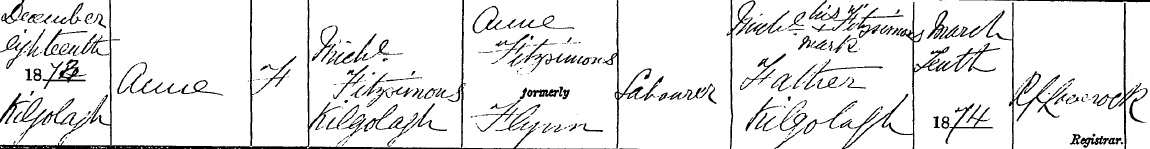 December
eighteenth
1873
Kilgolagh
Anne
F
Michl
Fitzsimons
Kilgolagh
Anne
Fitzsimons
formerly
Flynn
Labourer
Michl his x Fitzsimons
mark
Father
Kilgolagh
March
Tenth
1874
Registrar.